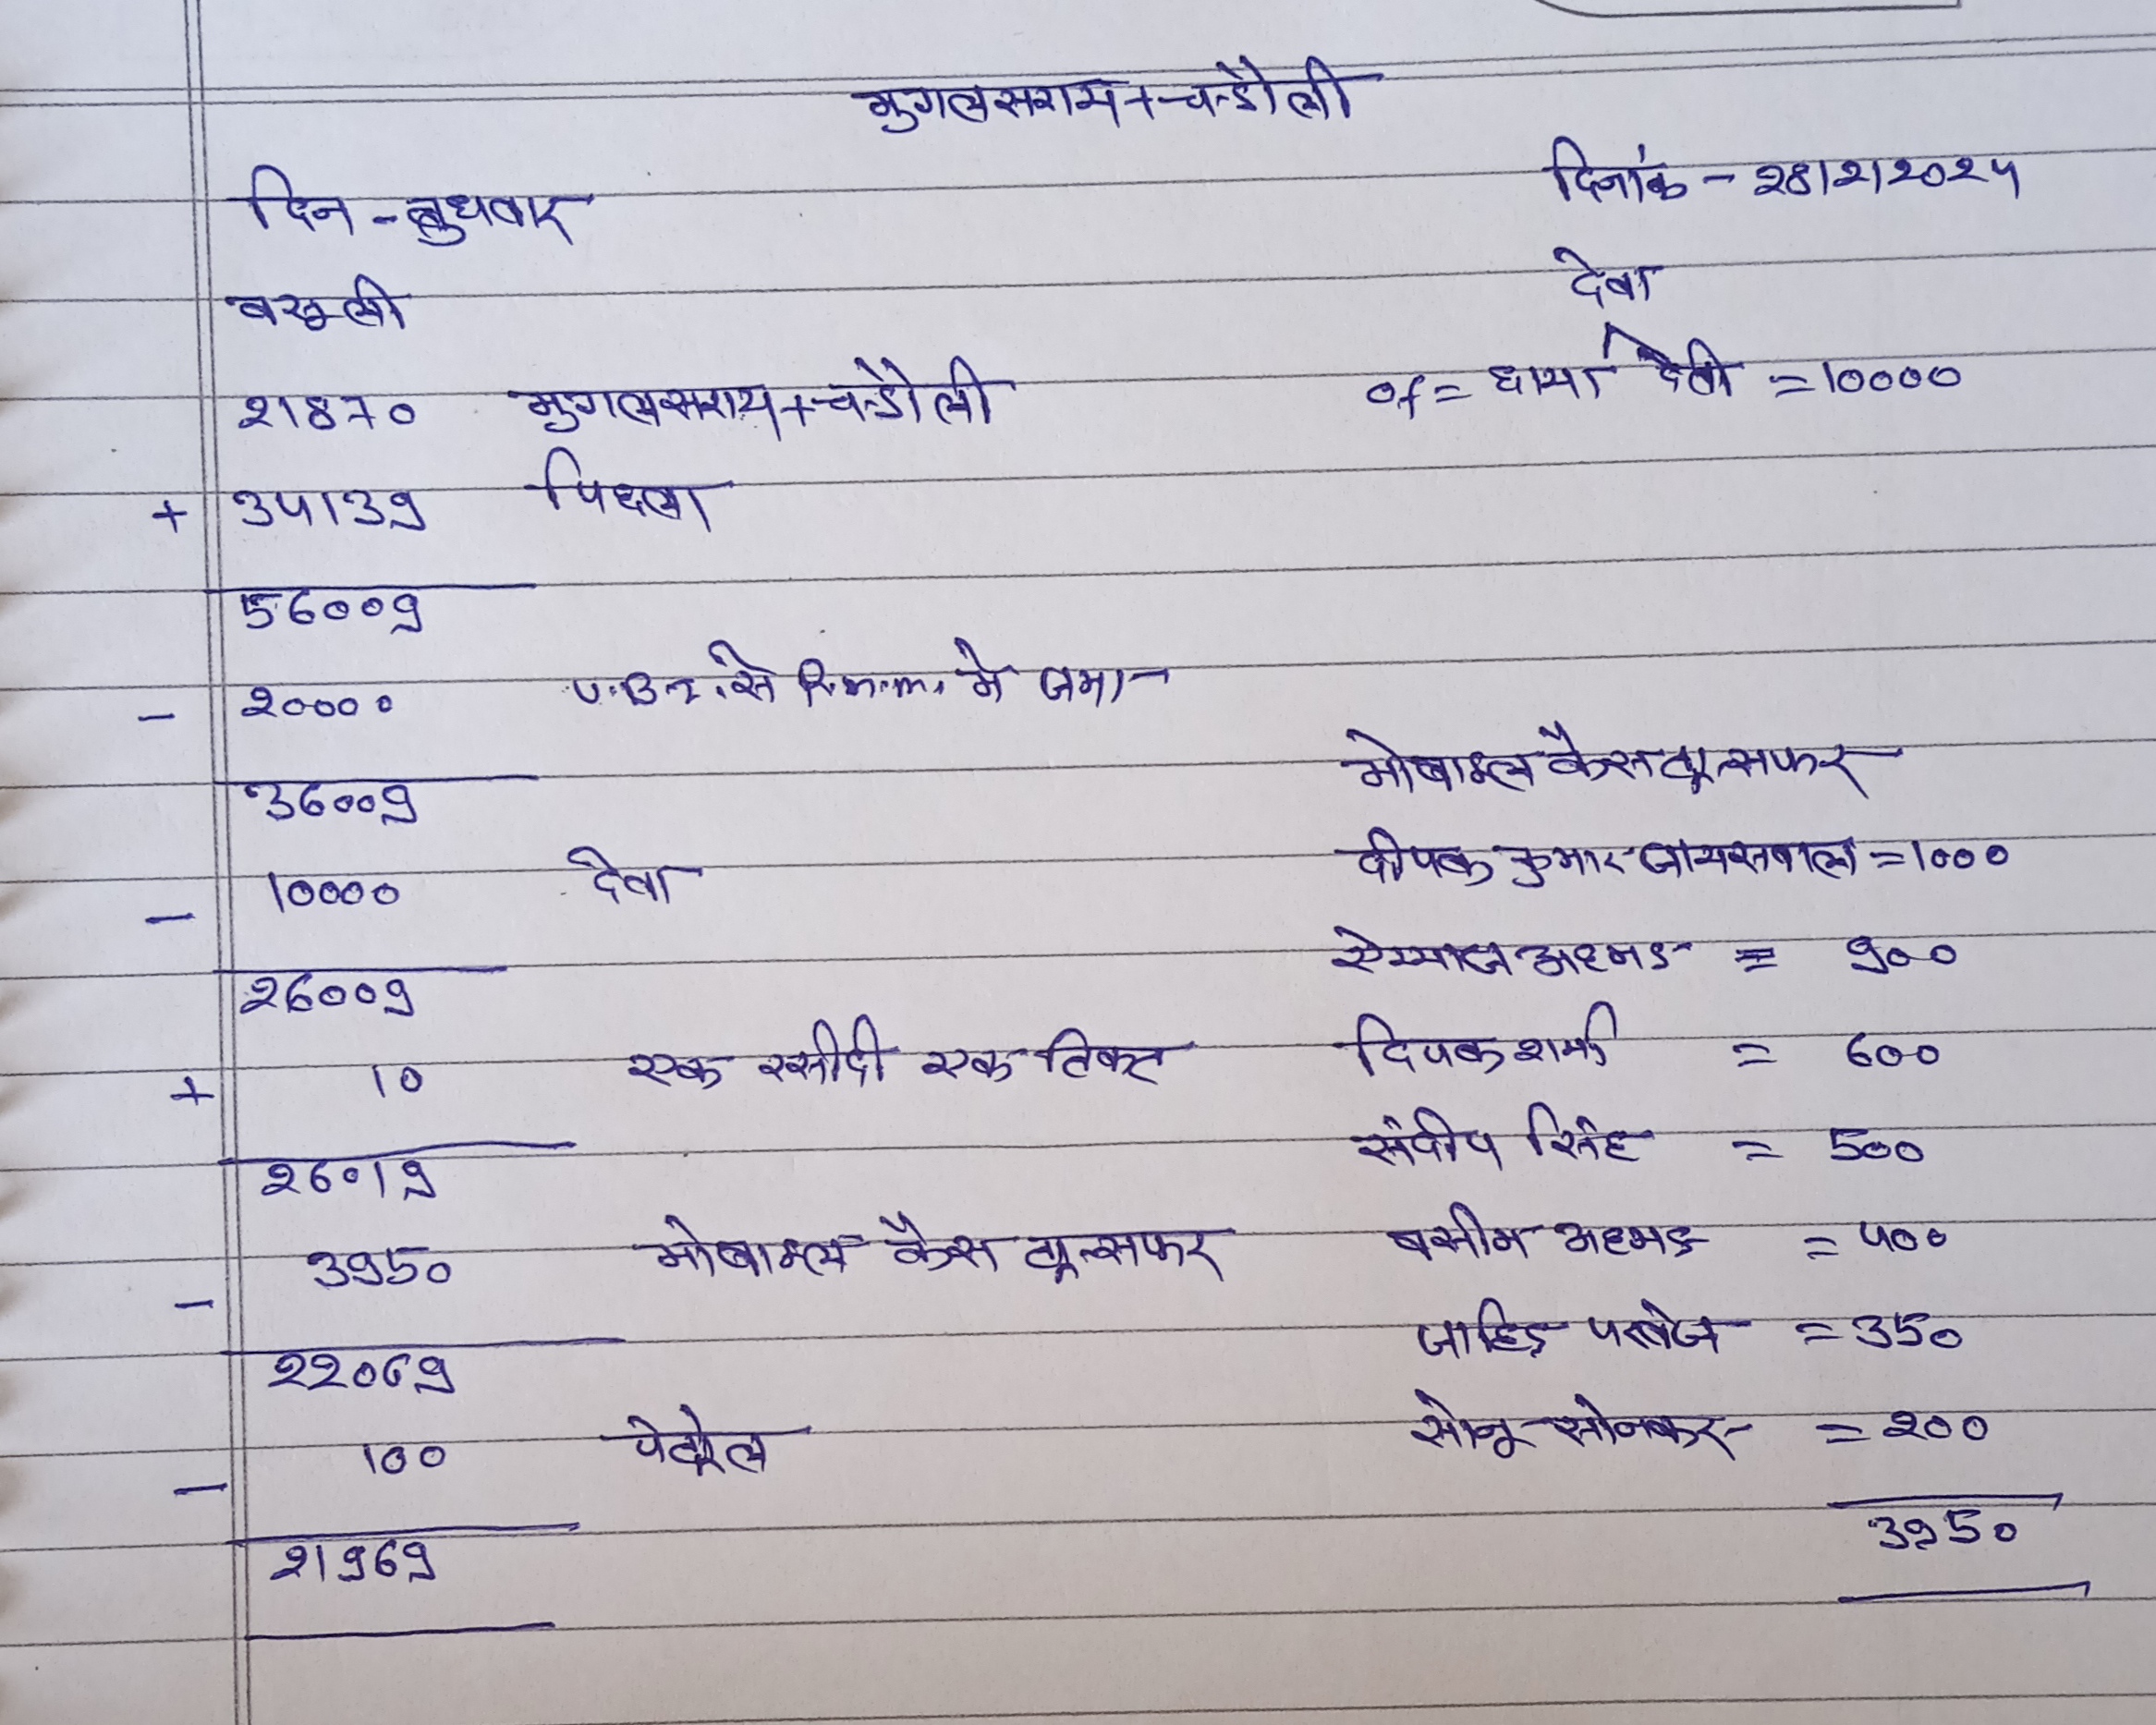 मुगलसराय+चन्डौली
दिनांक - 28/2/2024
दिन - बुधवार
देवा
वसूली
21870 मुगलसराय+चन्डौली
of = छाया देवी = 10000
+ 34139 पिछला
56009
- 20000 U.B.I. से R.m.m. मे जमा
मोबाइल कैस ट्रान्सफर
36009
दीपक कुमार जायसवाल = 1000
- 10000 देवा
अहमद = 900
26009
+ 10 एक रसीदी एक टिकट
दिपक शर्मा = 600
संदीप सिंह = 500
26019
- 3950 मोबाइल कैस ट्रान्सफर
वसीम अहमद = 400
जाहिद परवेज = 350
22069
सोनू सोनकर = 200
- 100 पेट्रोल
3950
21969